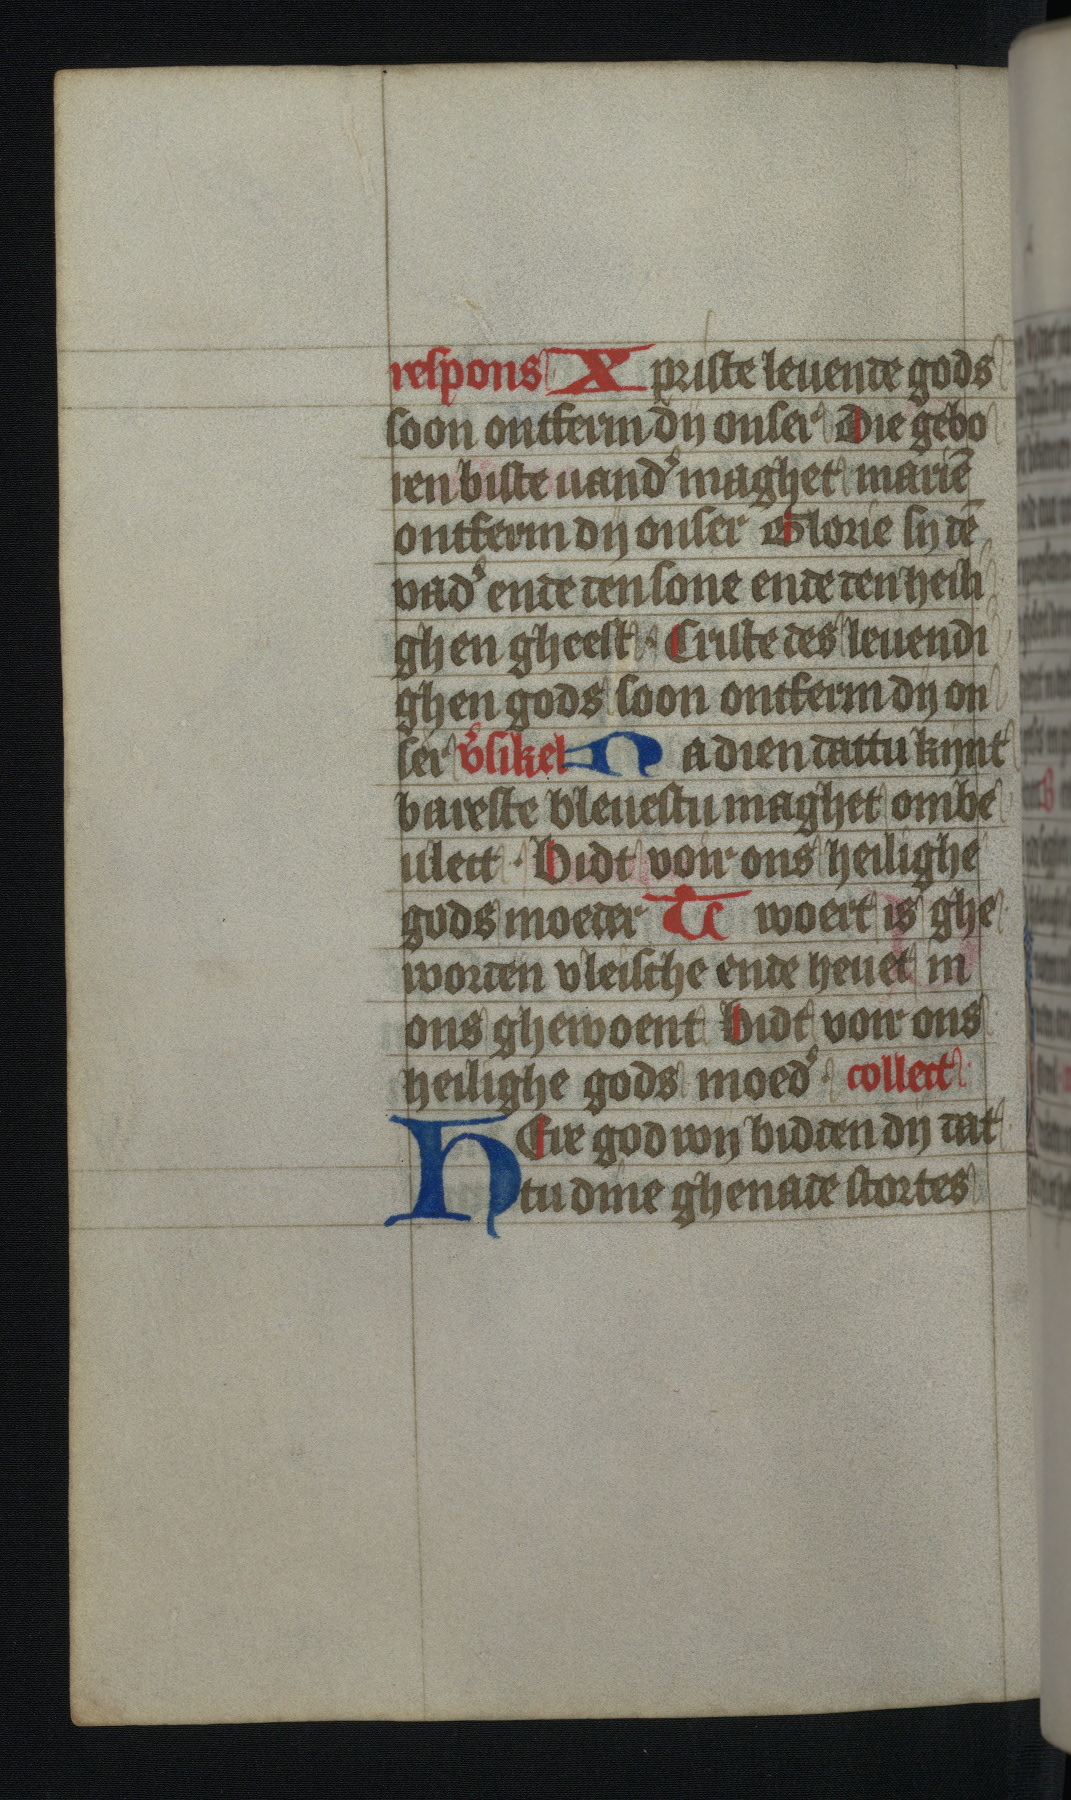 respons X priste leuende gods
soon ontferm dij onser Die gebo
ren biste uand' maghet marie̅
ontferm dij onser Glorie sij de̅
vad' ende den sone ende den heili
ghen gheest · Criste des leuendi
ghen gods soon ontferm dij on
ser v'sikel N a dien dattu kijnt
bareste bleuestu maghet ombe
ulect · Bidt voir ons heilighe
gods moeder T woert is ghe
worden vleische ende heuet in
ons ghewoent Bidt voir ons
heilighe gods moed' · collect
HEre god wij bidden dij dat
tu dine ghenade stortes